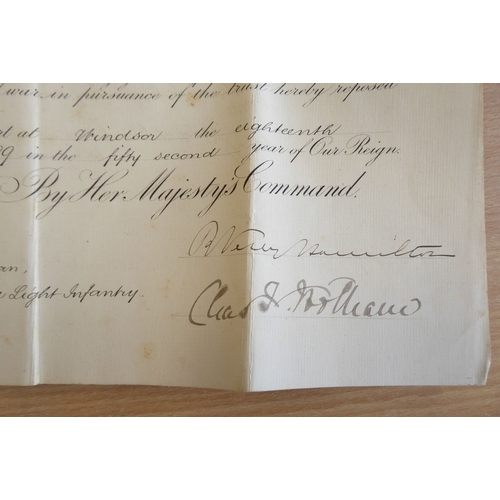 war, in pursuance of the trust hereby reposed
at Windsor the eighteenth
9 in the fifty second year of Our Reign.
By Her Majesty's Command.
Hamilton
an,
Light Infantry.
Chas